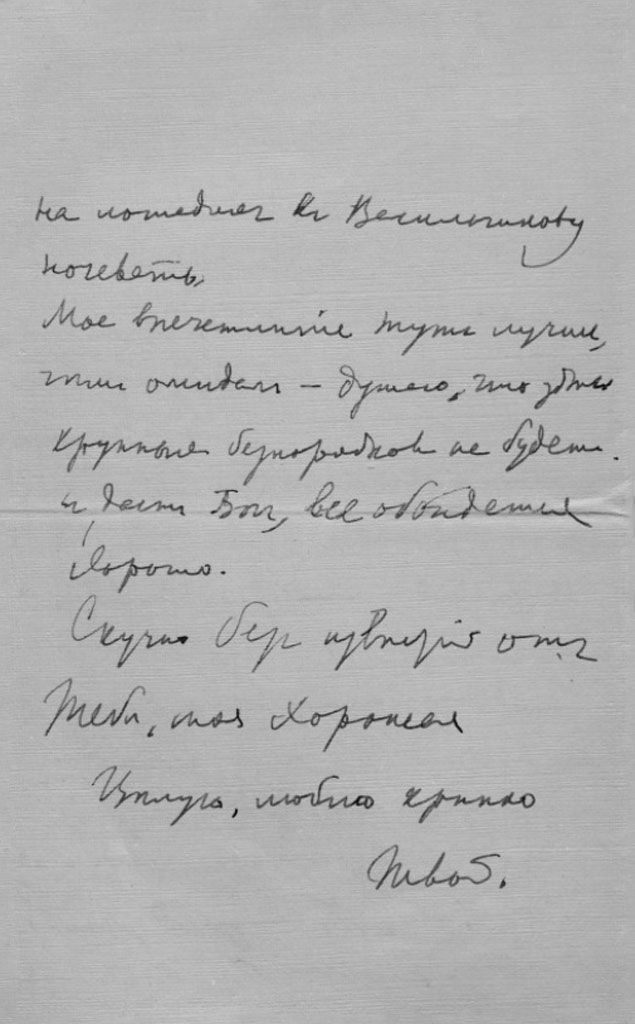 на лошадяхъ къ Васильчикову
ночевать.
Мое впечатлѣніе тутъ лучше,
чѣмъ ожидалъ – думаю, что здѣсь
крупныхъ безпорядковъ не будетъ.
и, дастъ Богъ, все обойдется
хорошо.
Скучно безъ извѣстій отъ
Тебя, моя хорошая
Цѣлую, люблю крѣпко
Твой.